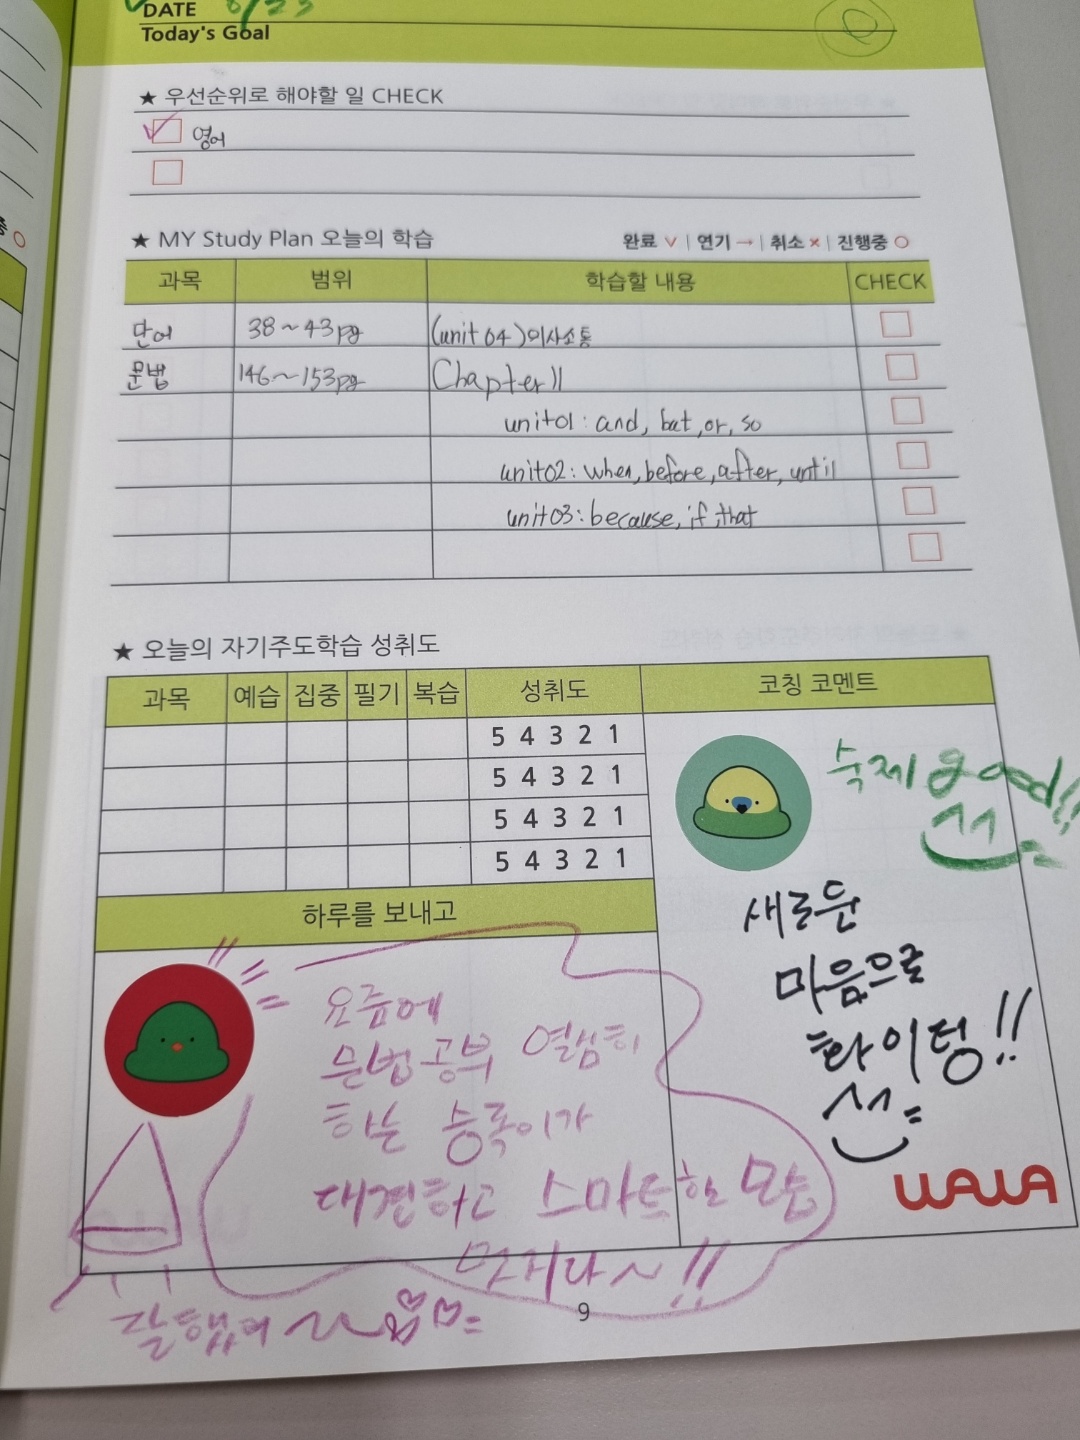 DATE 6/23
Today's Goal
★ 우선순위로 해야할 일 CHECK
영어
★ MY Study Plan 오늘의 학습 완료 ∨ | 연기 → | 취소 × | 진행중 ○
과목 범위 학습할 내용 CHECK
단어 38~43pg (unit 04)의사소통
문법 146~153pg Chapter 11
unit01: and, but, or, so
unit02: when, before, after, until
unit03: because, if, that
★ 오늘의 자기주도학습 성취도
과목 예습 집중 필기 복습 성취도 코칭 코멘트
5 4 3 2 1
5 4 3 2 1
5 4 3 2 1
5 4 3 2 1
숙제 good!!
새로운
마음으로
화이팅!!
WAWA
하루를 보내고
요즘에
문법공부 열심히
하는 승록이가
대견하고 스마트한 모습
멋지다~!!
잘했어
9